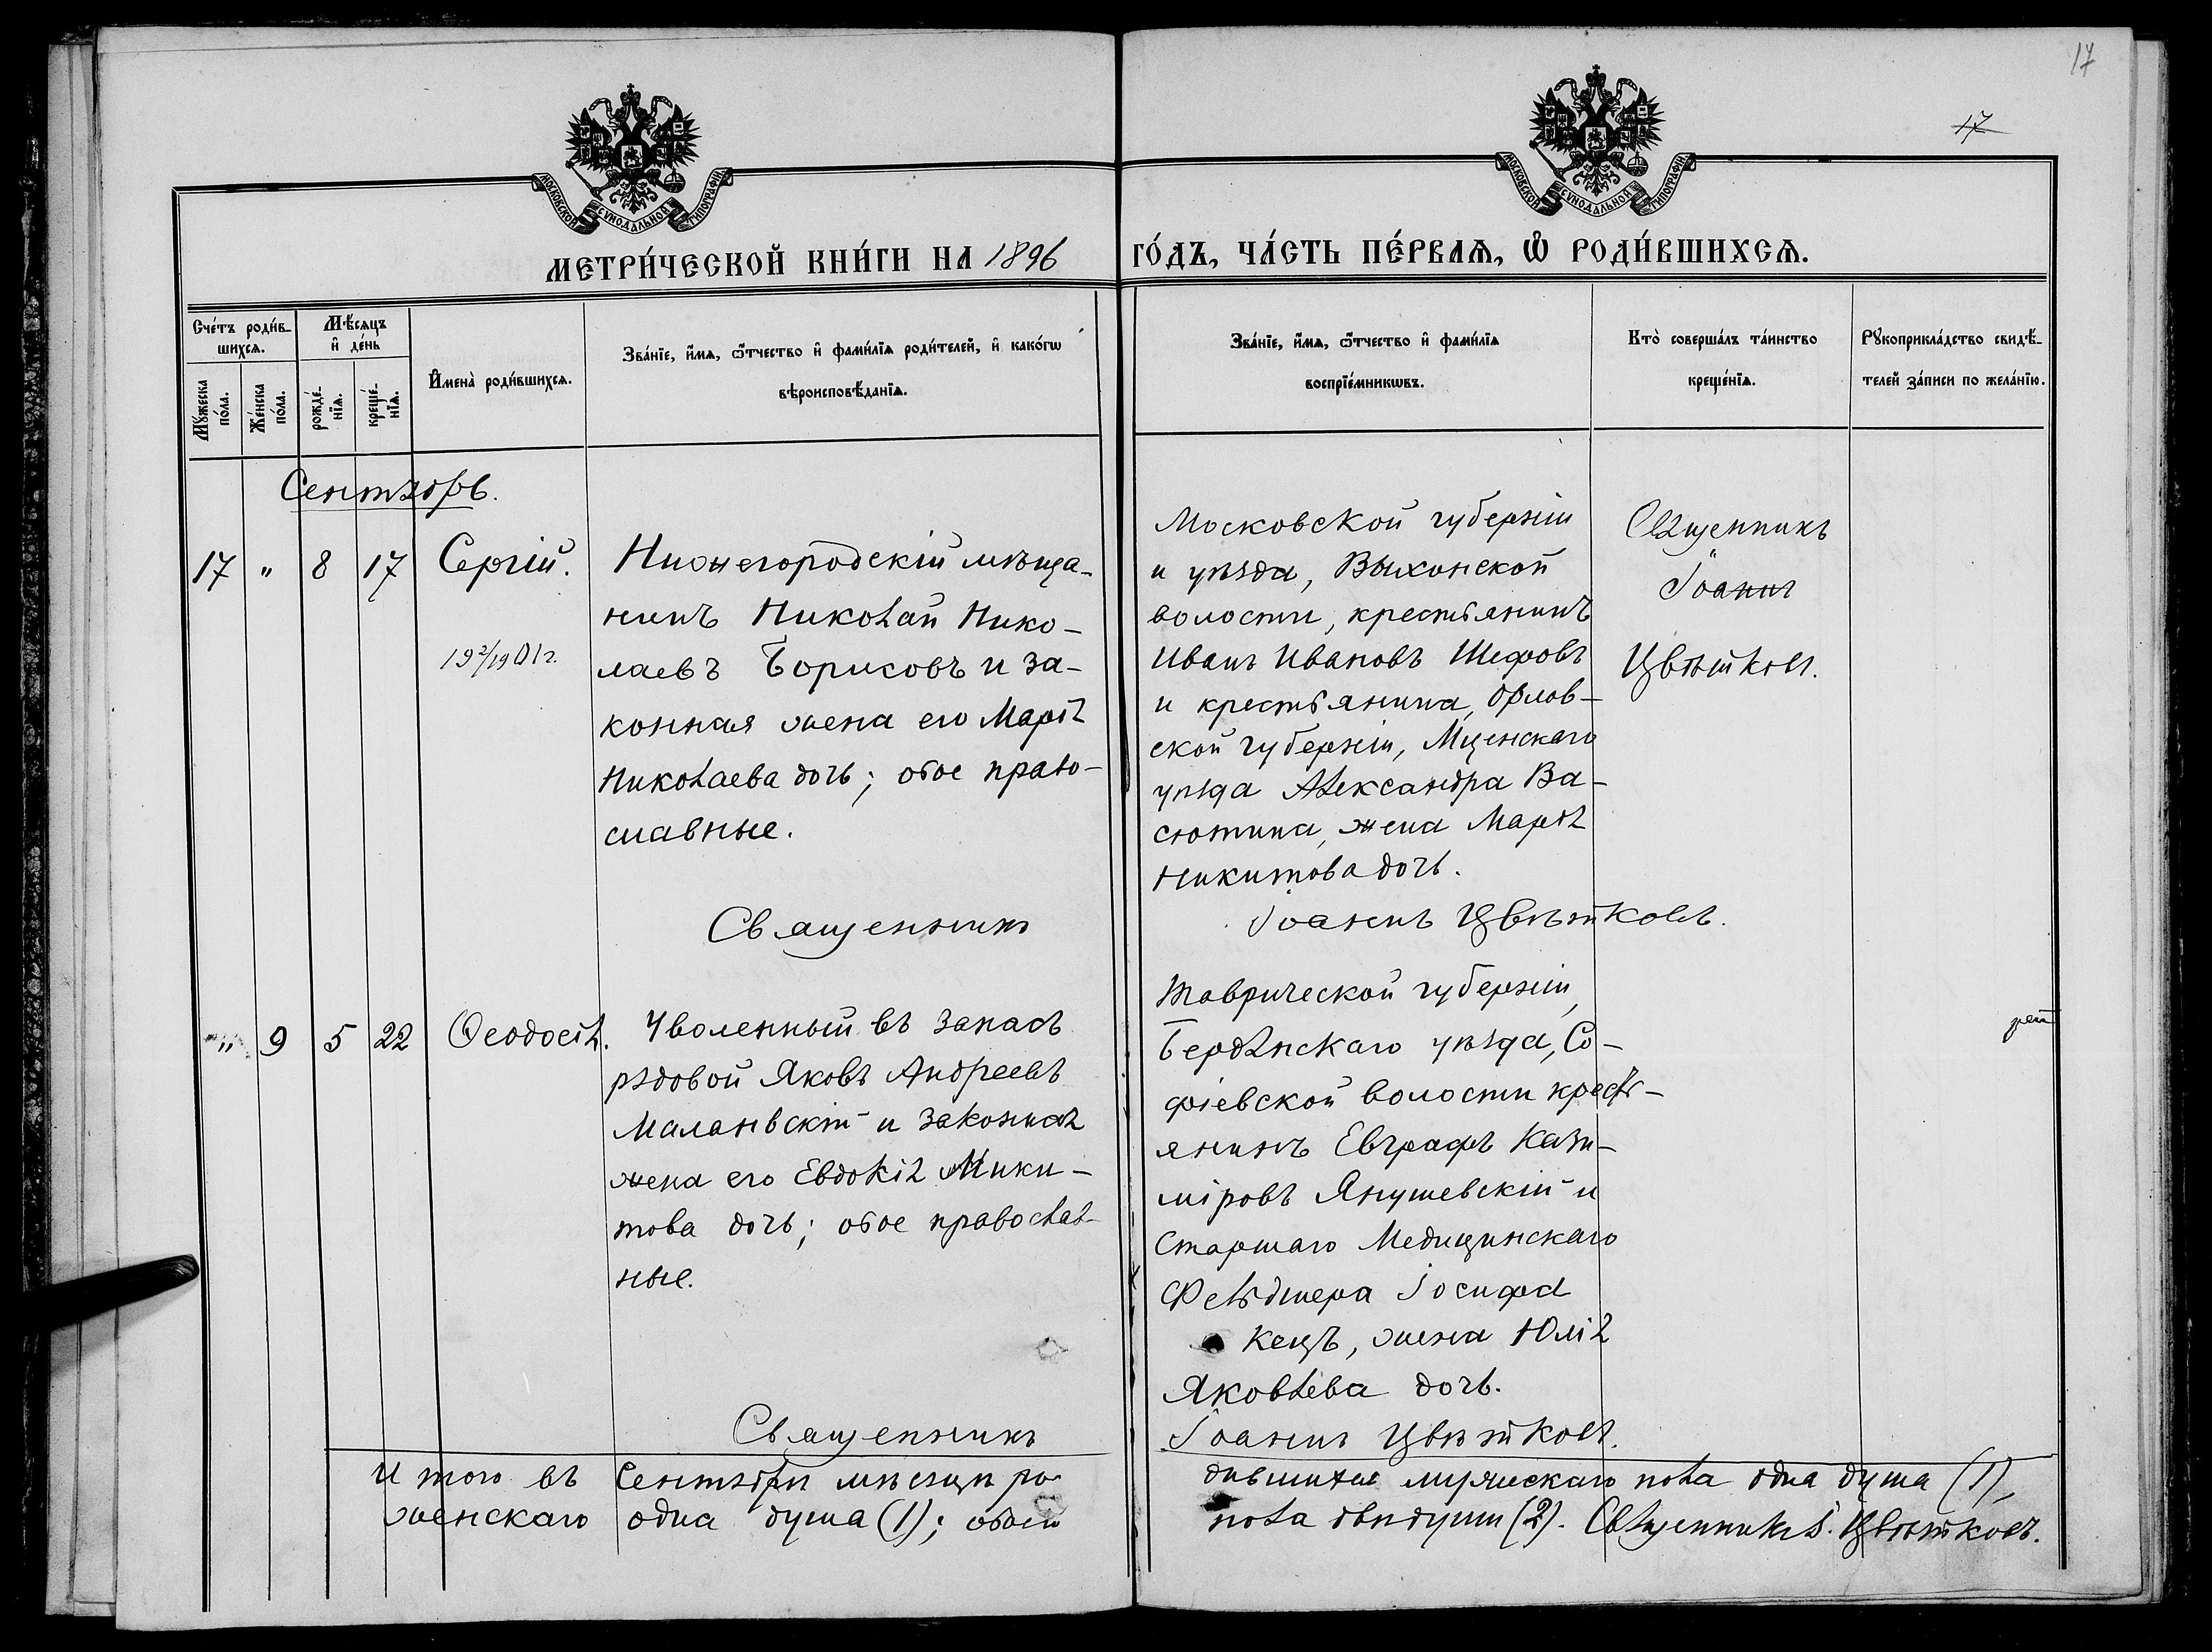 17
17
МОСКОВСКОЙ СѴНОДАЛЬНОЙ ТИПОГРАФІИ
МОСКОВСКОЙ СѴНОДАЛЬНОЙ ТИПОГРАФІИ
МЕТРИ́ЧЕСКОЙ КНИ́ГИ НА 1896
ГО́ДЪ, ЧА́СТЬ ПЕ́РВАѦ, Ѽ РОДИ́ВШИХСѦ.
Сче́тъ роди́в-
шихсѧ.
Мꙋ́жеска
по́ла.
Же́нска
по́ла.
Мѣ́сѧцъ
и҆ де́нь
рожде́-
нїѧ.
креще́-
нїѧ.
И҆мена̀ роди́вшихсѧ.
Зва́нїе, и҆́мѧ, ѻ҆́тчество и҆ фами́лїѧ роди́телей, и҆ како́гѡ
вѣроисповѣ́данїѧ.
Зва́нїе, и҆́мѧ, ѻ҆́тчество и҆ фами́лїѧ
воспрїе́мникѡвъ.
Кто̀ соверша́лъ та́инство
креще́нїѧ.
Рꙋкоприкла́дство свидѣ́-
телей за́писи по жела́нїю.
Сентябрь.
17 " 8 17 Сергій.
19 2/19 01 г.
Нижегородскій мѣща-
нинъ Николай Нико-
лаевъ Борисовъ и за-
конная жена его Марія
Николаева дочь; обое право-
славные.
Московской губерніи
и уѣзда, Выхонской
волости, крестьянинъ
Иванъ Ивановъ Шефовъ
и крестьянина, Орлов-
ской губерніи, Мценскаго
уѣзда Александра Ва-
сютина, жена Марія
Никитова дочь.
Священникъ
Іоаннъ
Цвѣтковъ.
Священникъ
Іоаннъ Цвѣтковъ.
" 9 5 22 Ѳеодосія.
Уволенный въ запасъ
рядовой Яковъ Андреевъ
Малановскій и законная
жена его Евдокія Мики-
това дочь; обое православ-
ные.
Таврической губерніи,
Бердянскаго уѣзда, Со-
фіевской волости кресть-
янинъ Евграфъ Кази-
міровъ Янушевскій и
Старшаго Медицинскаго
Фельдшера Іосифа
Кецъ, жена Юлія
Яковлева дочь.
Священникъ
Іоаннъ Цвѣтковъ.
Итого въ Сентябрѣ мѣсяцѣ ро-
дившихся мужескаго пола одна душа (1),
женскаго одна душа (1); обоего
пола двѣ души (2). Священникъ І. Цвѣтковъ.